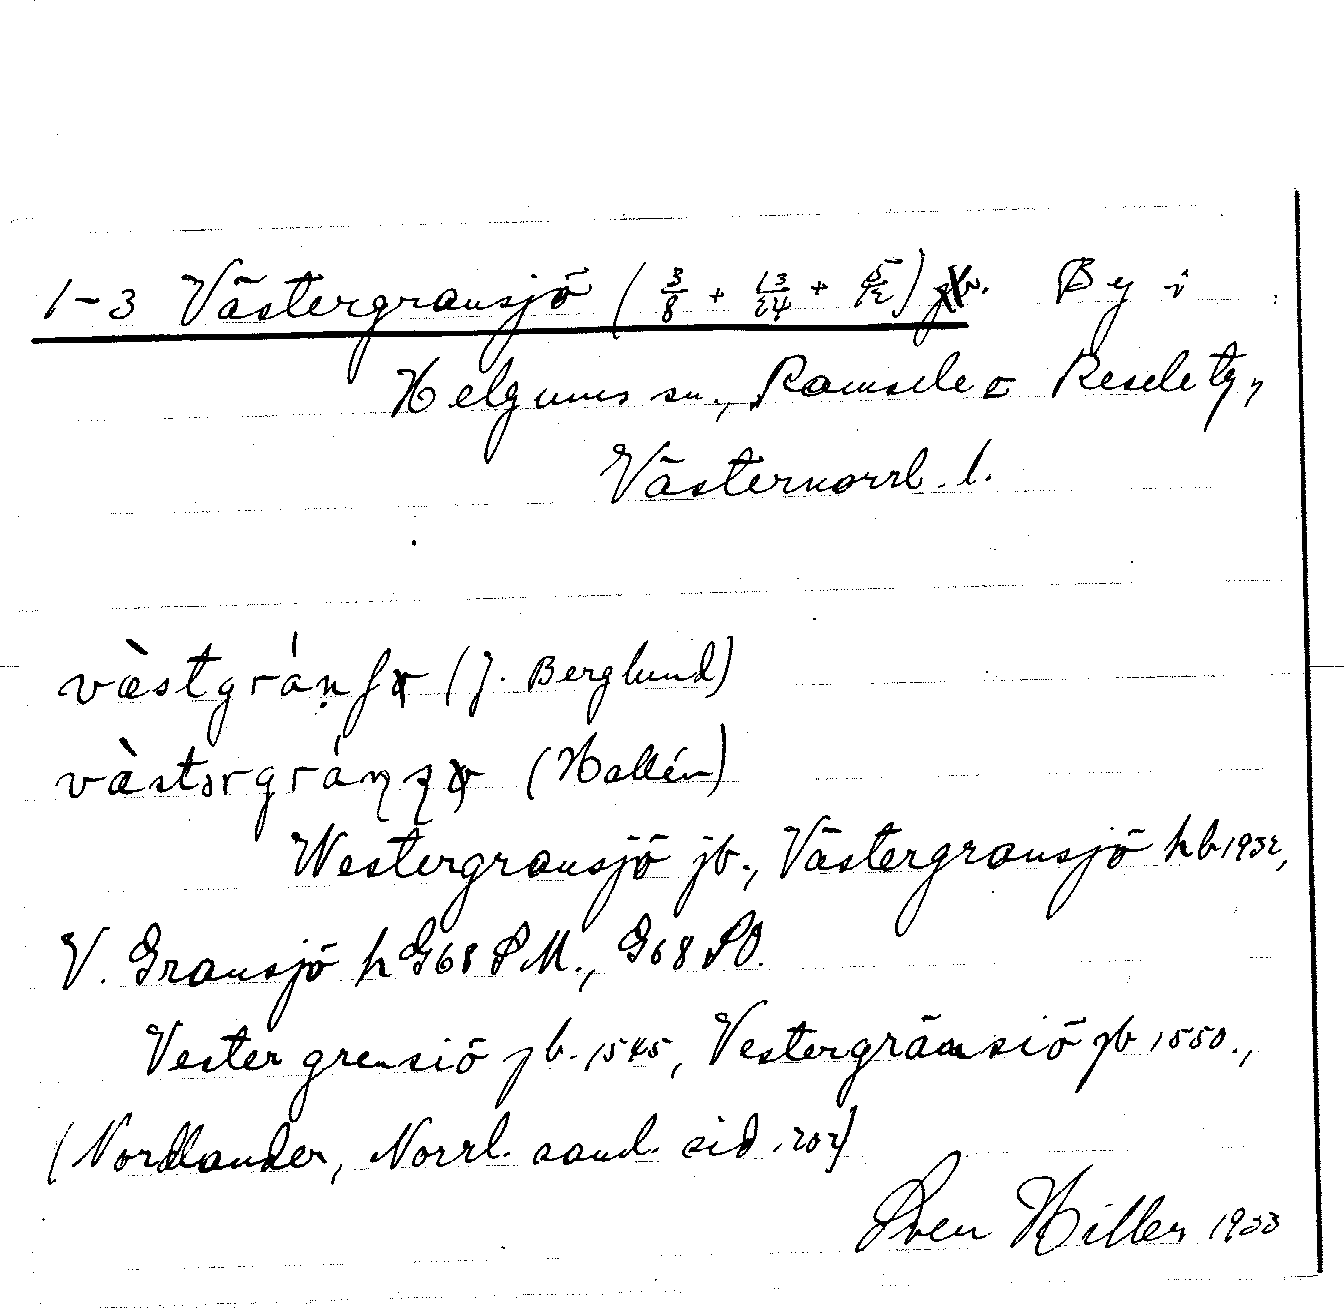 1-3 Västergransjö (3/8 + 13/24 + 5/12) By i
Helgums sn., Ramsele o Resele tg,
Västernorrl. l.
(J. Berglund)
(Hallén)
Westergransjö jb., Västergransjö hb 1932,
V. Gransjö h G68 SM., G68 SO.
Vester grensiö jb. 1545, Vestergränsiö jb 1550.,
(Nordlander, Norrl. saml. sid. 202)
Sven Hiller 1933